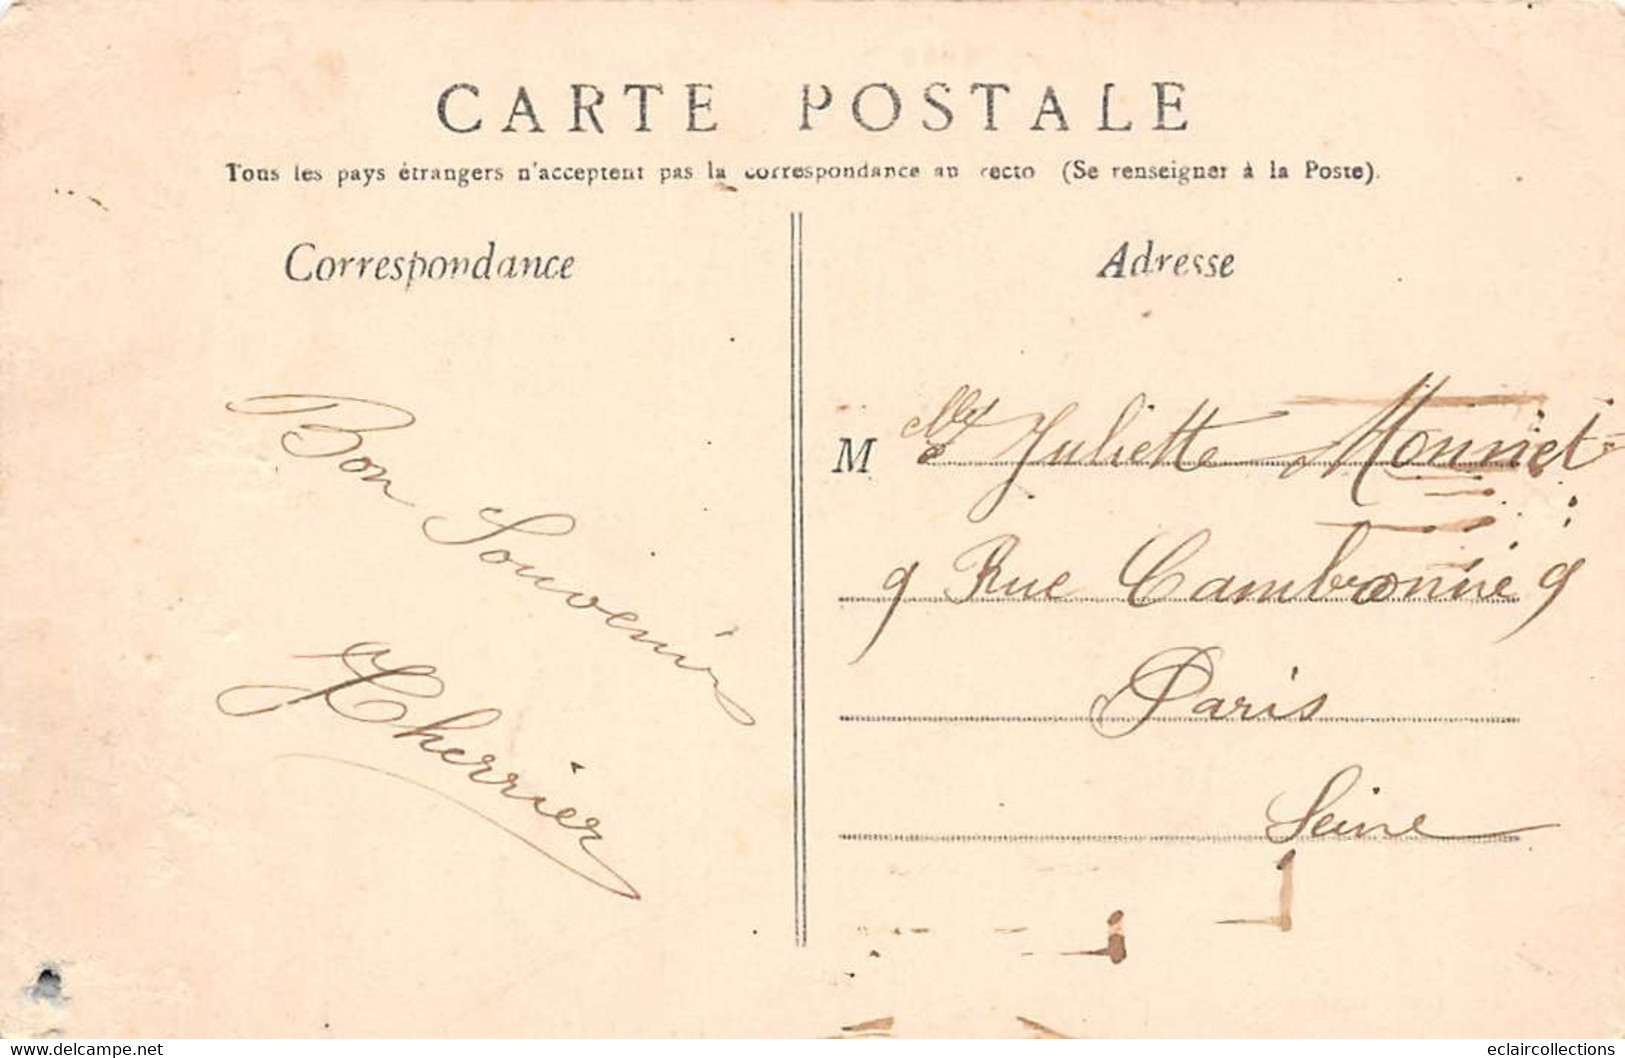 CARTE POSTALE
Tous les pays étrangers n'acceptent pas la correspondance au recto (Se renseigner à la Poste).
Correspondance
Bon Souvenir
JCherrier
Adresse
M elle Juliette Monnet
9 Rue Cambronne 9
Paris
Seine
www.delcampe.net
eclaircollections